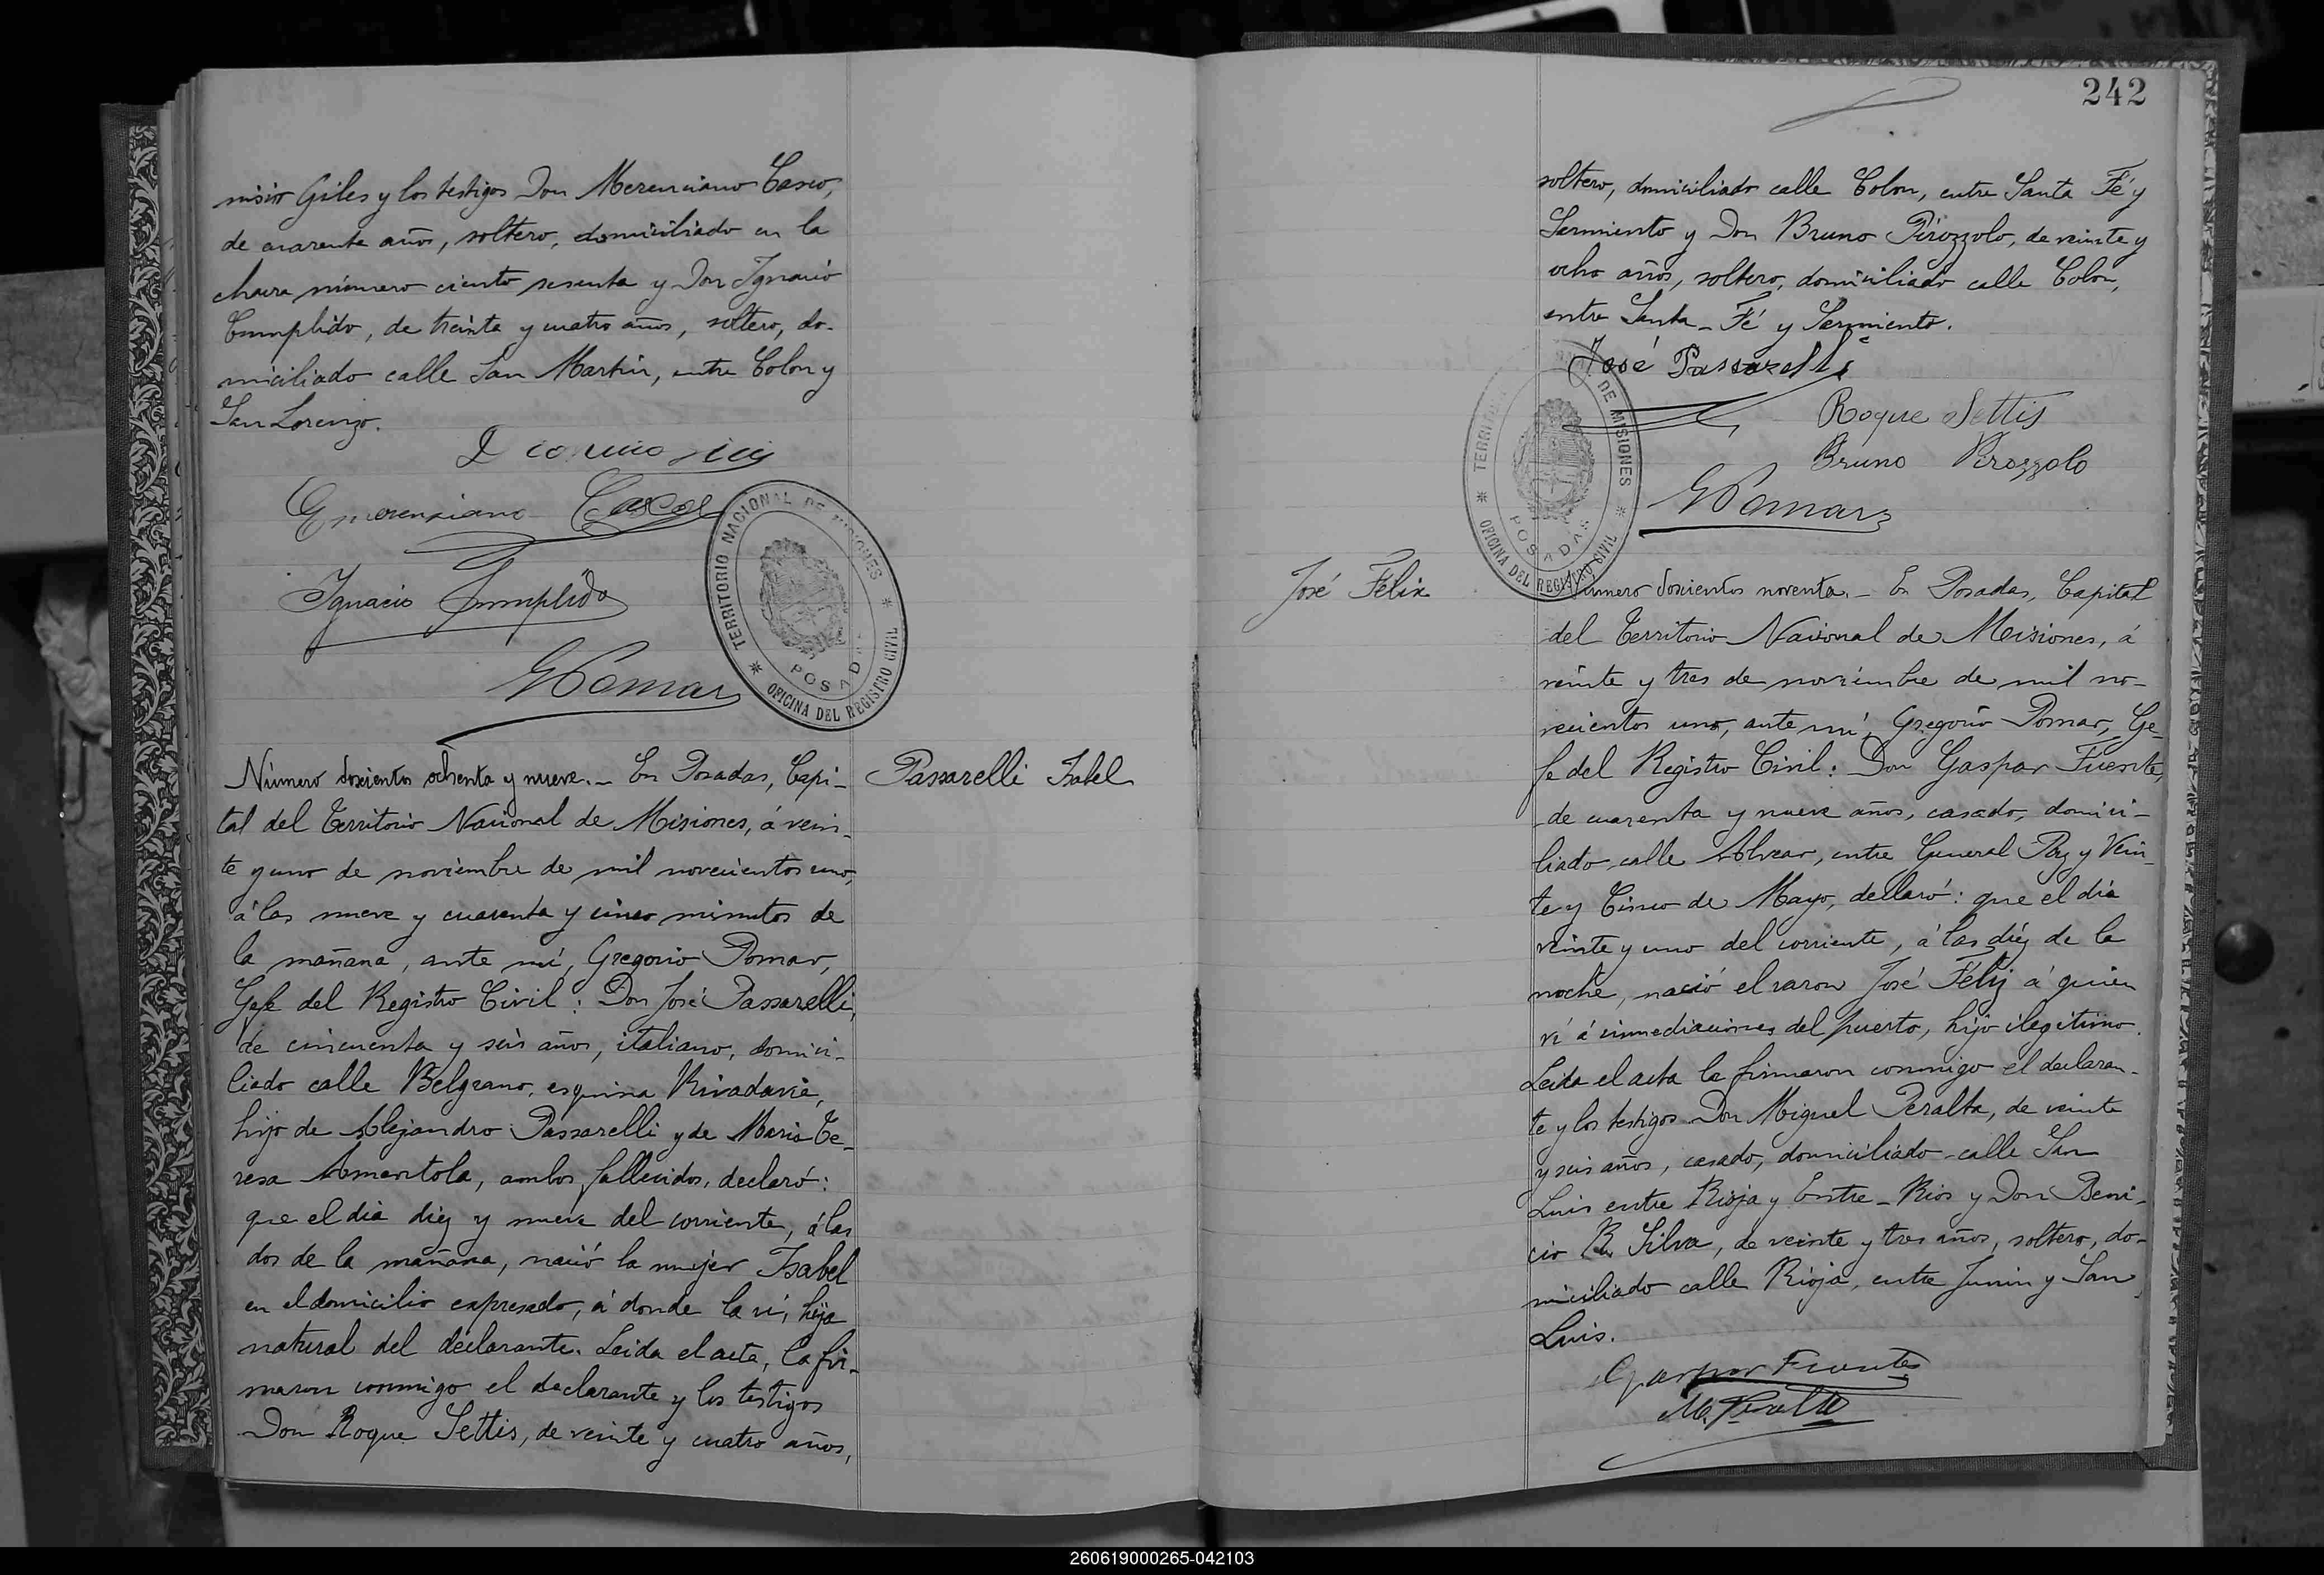 nisio Giles y los testigos Don Merenciano Casco,
de cuarenta años, soltero, domiciliado en la
chacra número ciento sesenta y Don Ignacio
Cumplido, de treinta y cuatro años, soltero, do-
miciliado calle San Martin, entre Colon y
San Lorenzo.
Emerenziano Casco
Ignacio Cumplido
GPomar
TERRITORIO NACIONAL DE MISIONES
POSADAS
OFICINA DEL REGISTRO CIVIL
Número doscientos ochenta y nueve.- En Posadas, Capi-
tal del Territorio Nacional de Misiones, á vein-
te y uno de noviembre de mil novecientos uno,
á las nueve y cuarenta y cinco minutos de
la mañana, ante mí, Gregorio Pomar,
Gefe del Registro Civil: Don José Passarelli,
de cincuenta y seis años, italiano, domici-
liado calle Belgrano, esquina Rivadavia,
hijo de Alejandro Passarelli y de Maria Te-
resa Amentola, ambos fallecidos, declaró:
que el dia diez y nueve del corriente, á las
dos de la mañana, nació la mujer Isabel
en el domicilio expresado, á donde la ví, hija
natural del declarante. Leida el acta, la fir-
maron conmigo el declarante y los testigos
Don Roque Settis, de veinte y cuatro años,
Passarelli Isabel
242
soltero, domiciliado calle Colon, entre Santa Fé y
Sarmiento y Don Bruno Pirozzolo, de veinte y
ocho años, soltero, domiciliado calle Colon,
entre Santa-Fé y Sarmiento.
José Passarelli
Roque Settis
Bruno Pirozzolo
GPomar
TERRITORIO DE MISIONES
POSADAS
OFICINA DEL REGISTRO CIVIL
José Felix
Número doscientos noventa.- En Posadas, Capital
del Territorio Nacional de Misiones, á
veinte y tres de noviembre de mil no-
vecientos uno, ante mí, Gregorio Pomar, Ge-
fe del Registro Civil: Don Gaspar Fuente,
de cuarenta y nueve años, casado, domici-
liado calle Alvear, entre General Paz y Vein-
te y Cinco de Mayo, declaró: que el dia
veinte y uno del corriente, á las diez de la
noche, nació el varon José Féliz á quien
ví á inmediaciones del puerto, hijo ilegítimo.
Leida el acta la firmaron conmigo el declaran-
te y los testigos Don Miguel Peralta, de veinte
y seis años, casado, domiciliado calle San
Luis entre Rioja y Entre-Rios y Don Beni-
cio R. Silva, de veinte y tres años, soltero, do-
miciliado calle Rioja, entre Junin y San
Luis.
Gaspar Fuentes
M. Peralta
260619000265-042103